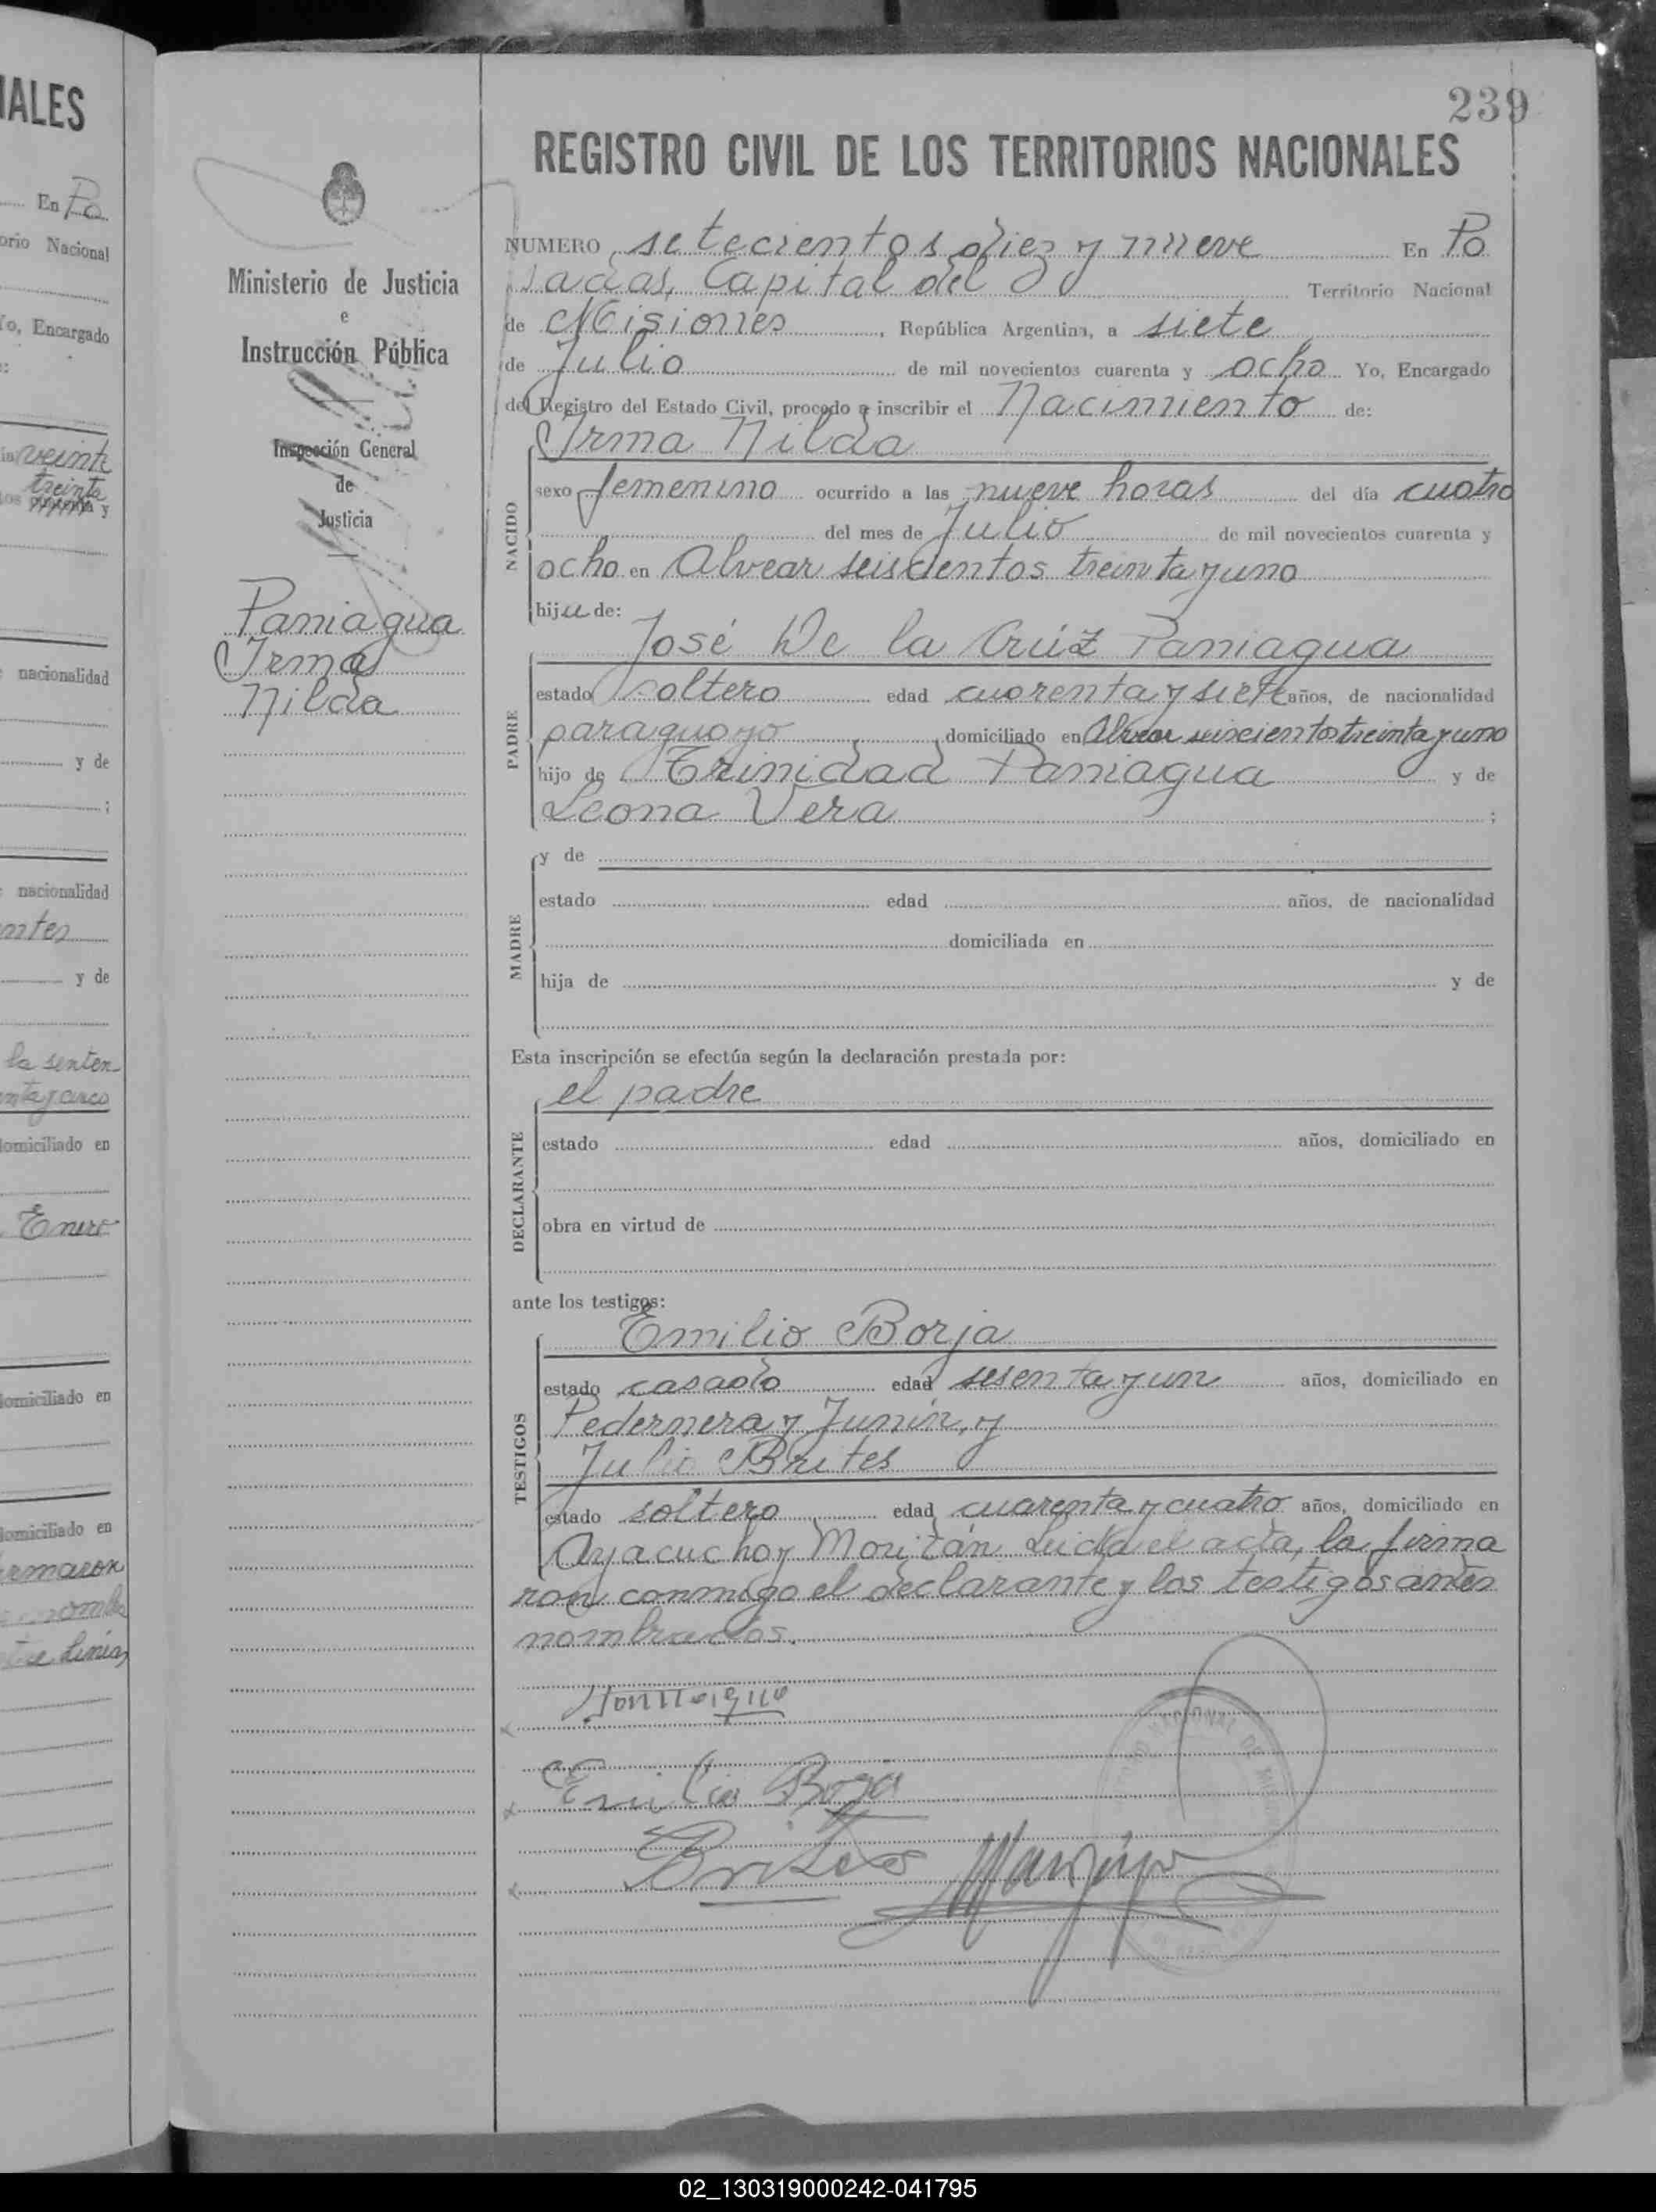 IALES
En Po
orio Nacional
Yo, Encargado
veinti
treinta
nacionalidad
y de
nacionalidad
y de
la senten
domiciliado en
Enero
domiciliado en
domiciliado en
firmaron
239
REGISTRO CIVIL DE LOS TERRITORIOS NACIONALES
Ministerio de Justicia
e
Instrucción Pública
Inspección General
de
Justicia
Paniagua
Irma
Nilda
NUMERO setecientos diez y nueve En Po
sadas, Capital del Territorio Nacional
de Misiones, República Argentina, a siete
de Julio de mil novecientos cuarenta y ocho Yo, Encargado
del Registro del Estado Civil, procedo a inscribir el Nacimiento de:
Irma Nilda
NACIDO
sexo femenino ocurrido a las nueve horas del día cuatro
del mes de Julio de mil novecientos cuarenta y
ocho en Alvear seiscientos treinta y uno
hija de:
José De la Cruz Paniagua
PADRE
estado soltero edad cuarenta y siete años, de nacionalidad
paraguayo domiciliado en Alvear seiscientos treinta y uno
hijo de Trinidad Paniagua y de
Leona Vera ;
MADRE
y de
estado edad años, de nacionalidad
domiciliada en
hija de y de
Esta inscripción se efectúa según la declaración prestada por:
el padre
DECLARANTE
estado edad años, domiciliado en
obra en virtud de
ante los testigos:
Emilio Borja
TESTIGOS
estado casado edad sesenta y un años, domiciliado en
Pedernera y Junín, y
Julio Brites
estado soltero edad cuarenta y cuatro años, domiciliado en
Ayacucho y Moritán Leida el acta, la firma
ron conmigo el declarante y los testigos antes
nombrados.
Emilio Borja
Brites
02_130319000242-041795